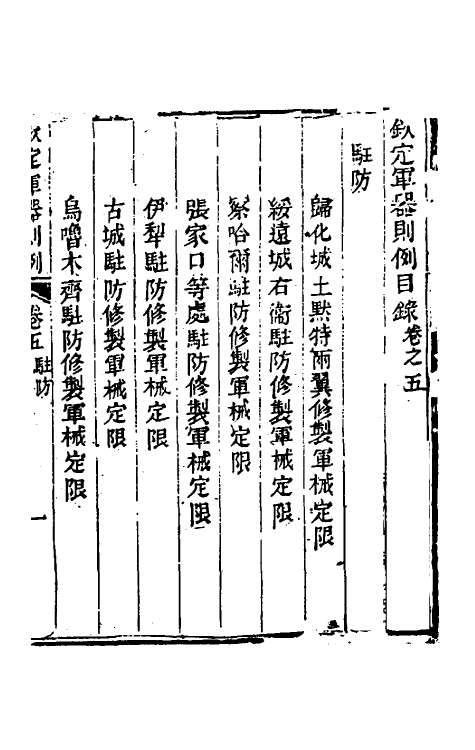 欽定軍器則例目錄卷之五
駐防
歸化城土默特兩翼修製軍械定限
綏遠城右衛駐防修製軍械定限
察哈爾駐防修製軍械定限
張家口等處駐防修製軍械定限
伊犁駐防修製軍械定限
古城駐防修製軍械定限
烏嚕木齊駐防修製軍械定限
欽定軍器則例 卷五 駐防 一